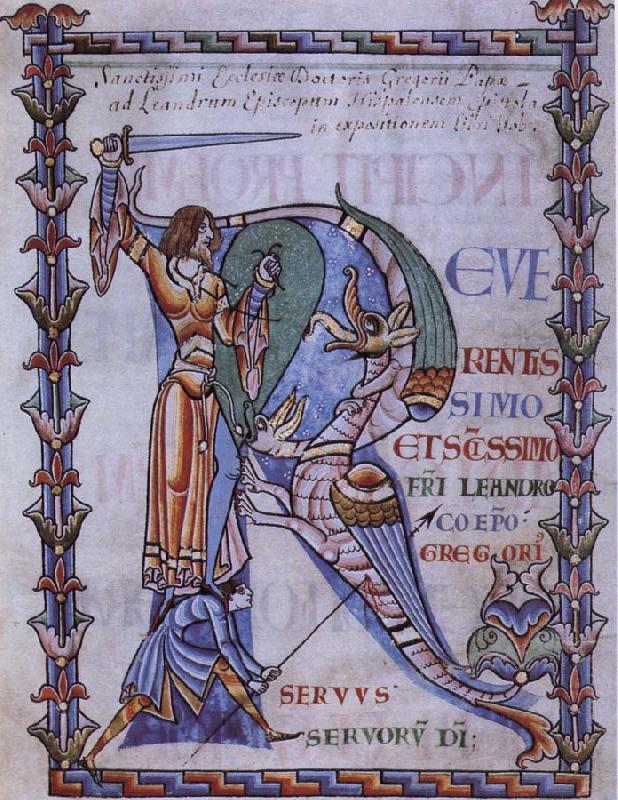 Sanctissimi Ecclesiæ Doctoris Gregorii Papæ
ad Leandrum Episcopum Hispalensem Epistola
in expositionem libri Iob.
R
EVE
RENTIS
SIMO
ET SC̄ISSIMO
FR̄I LEANDRO
COEP̄O·
GREGORI᾿
SERVVS·
SERVORV̄ D̄I;
INCIPIT PROEM